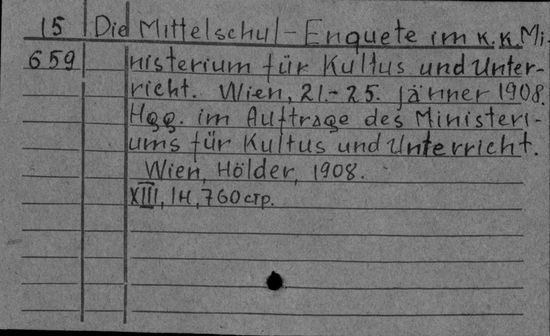 15 Die Mittelschul-Enquete im K.K. Mi-
659 nisterium für Kultus und Unter-
richt. Wien, 21.-25. Jänner 1908.
Hgg. im Auftrage des Ministeri-
ums für Kultus und Unterricht.
Wien, Hölder, 1908.
XIII, 1н, 760 стр.